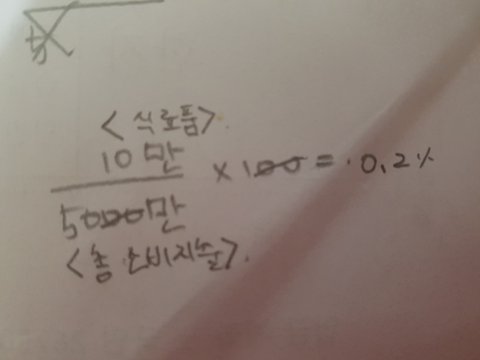 <식료품>.
10만
× 100 = 0.2%
5000만
<총 소비지출>.